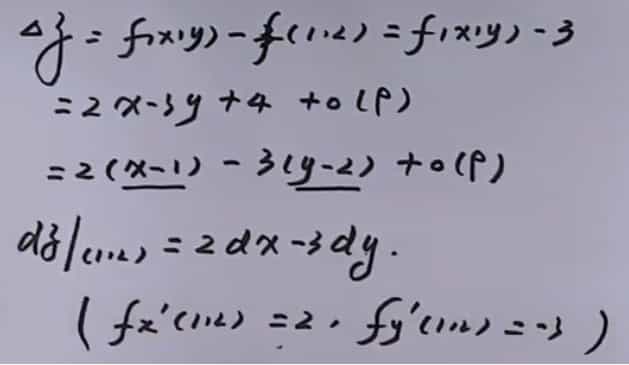 Δz = f(x,y) - f(1,2) = f(x,y) - 3
= 2x - 3y + 4 + o(ρ)
= 2(x-1) - 3(y-2) + o(ρ)
dz|(1,2) = 2dx - 3dy.
( fx'(1,2) = 2, fy'(1,2) = -3 )